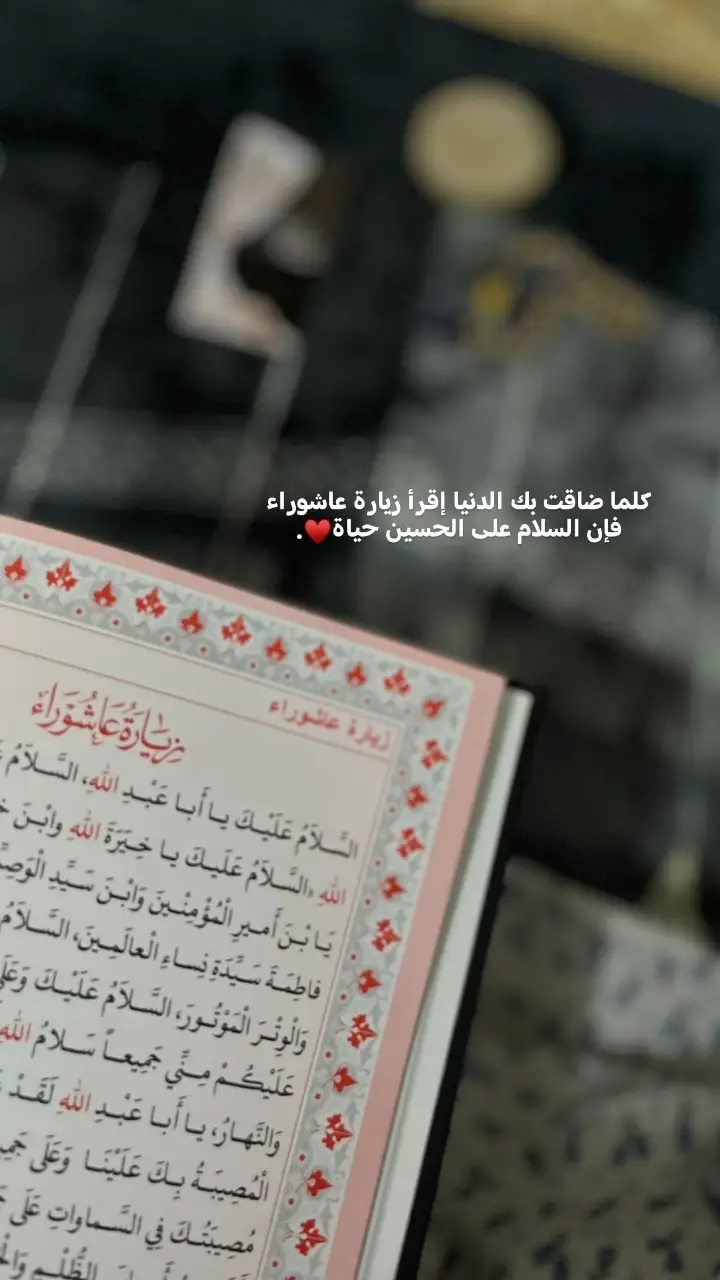 كلما ضاقت بك الدنيا إقرأ زيارة عاشوراء
فإن السلام على الحسين حياة♥️.
زيارة عاشوراء
زِيَارَةُ عَاشُورَاءَ
السَّلاَمُ عَلَيْكَ يا أَبا عَبْدِ اللهِ، السَّلاَمُ
اللهِ السَّلاَمُ عَلَيكَ يا خِيَرَةَ اللهِ وابْنَ
يَا بْنَ أَميرِ الْمُؤْمِنْينَ وَابْنَ سَيِّدِ
فاطِمَةَ سَيِّدَةِ نِساءِ الْعالَمِينَ، السَّلاَمُ
وَالْوِتْرَ الْمَوْتُورَ، السَّلاَمُ عَلَيْكَ وَعَلَى
عَلَيْكُمْ مِنِّي جَمِيعاً سَلامُ اللهِ
وَالنَّهارُ، يا أَبا عَبْدِ اللهِ لَقَدْ
الْمُصِيبَةُ بِكَ عَلَيْنَا وَعَلَى
مُصِيبَتُكَ فِي السَّماواتِ عَلَى
الظُّلْمِ